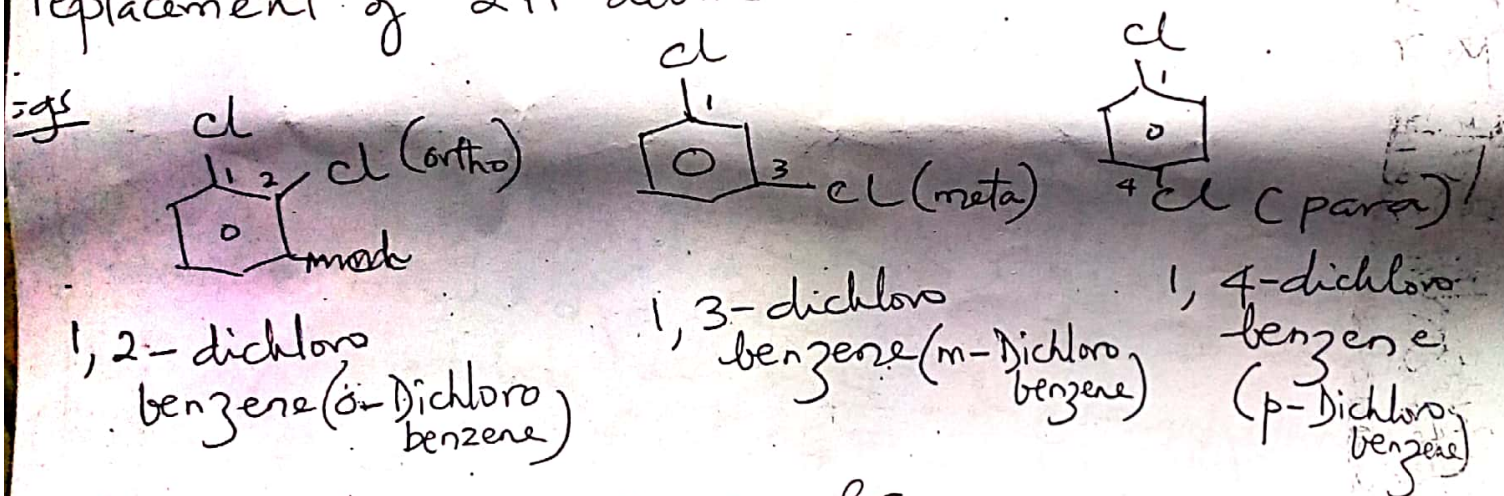 replacement of 2H
egs
Cl
1 2 Cl (ortho)
1,2-dichloro
benzene (o-Dichloro
benzene)
Cl
1
3 Cl (meta)
1,3-dichloro
benzene (m-Dichloro
benzene)
Cl
1
4 Cl (para)
1,4-dichloro
benzene
(p-Dichloro
benzene)